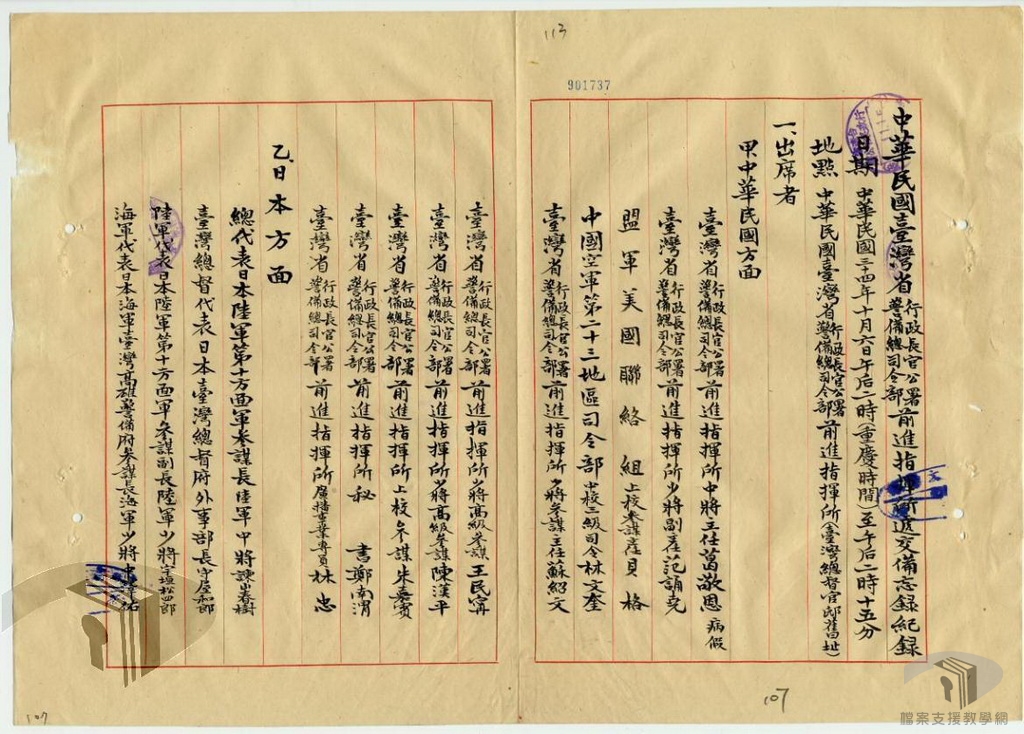 113
901737
中華民國臺灣省行政長官公署警備總司令部前進指揮所遞交備忘錄紀錄
日期 中華民國三十四年十月六日午后二時(重慶時間)至午后二時十五分
地點 中華民國臺灣省行政長官公署警備總司令部前進指揮所(臺灣總督官邸舊址)
一、出席者
甲、中華民國方面
臺灣省行政長官公署警備總司令部前進指揮所中將主任葛敬恩 病假
臺灣省行政長官公署警備總司令部前進指揮所少將副主任范誦堯
盟軍美國聯絡組上校參謀處長貝格
中國空軍第二十三地區司令部中校三級司令林文奎
臺灣省行政長官公署警備總司令部前進指揮所少將參謀主任蘇紹文
臺灣省行政長官公署警備總司令部前進指揮所少將高級參謀王民寧
臺灣省行政長官公署警備總司令部前進指揮所少將高級參謀陳漢平
臺灣省行政長官公署警備總司令部前進指揮所上校參謀朱嘉賓
臺灣省行政長官公署警備總司令部前進指揮所秘書鄭南渭
臺灣省行政長官公署警備總司令部前進指揮所廣播事業專員林忠
乙、日本方面
總代表日本陸軍第十方面軍參謀長陸軍中將諫山春樹
臺灣總督代表日本臺灣總督府外事部長守屋和郎
陸軍代表日本陸軍第十方面軍參謀副長陸軍少將宇垣松四郎
海軍代表日本海軍臺灣高雄警備府參謀長海軍少將中澤佑
107
107
檔案支援教學網